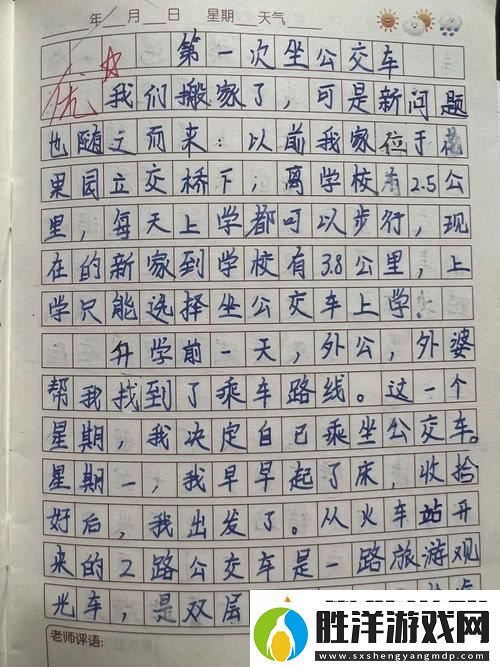 年 月 日 星期 天气
第一次坐公交车
优
我们搬家了，可是新问题
也随之而来：以前我家位于花
果园立交桥下，离学校有2.5公
里，每天上学都可以步行，现
在的新家到学校有3.8公里，上
学只能选择坐公交车上学.
升学前一天，外公，外婆
帮我找到了乘车路线。过一个
星期，我决定自己乘坐公交车。
星期一，我早早起了床，收拾
好后，我出发了。从火车站开
来的2路公交车是一路旅游观
光车，是双层
老师评语：
胜洋游戏网
www.sxshengyangmdp.com